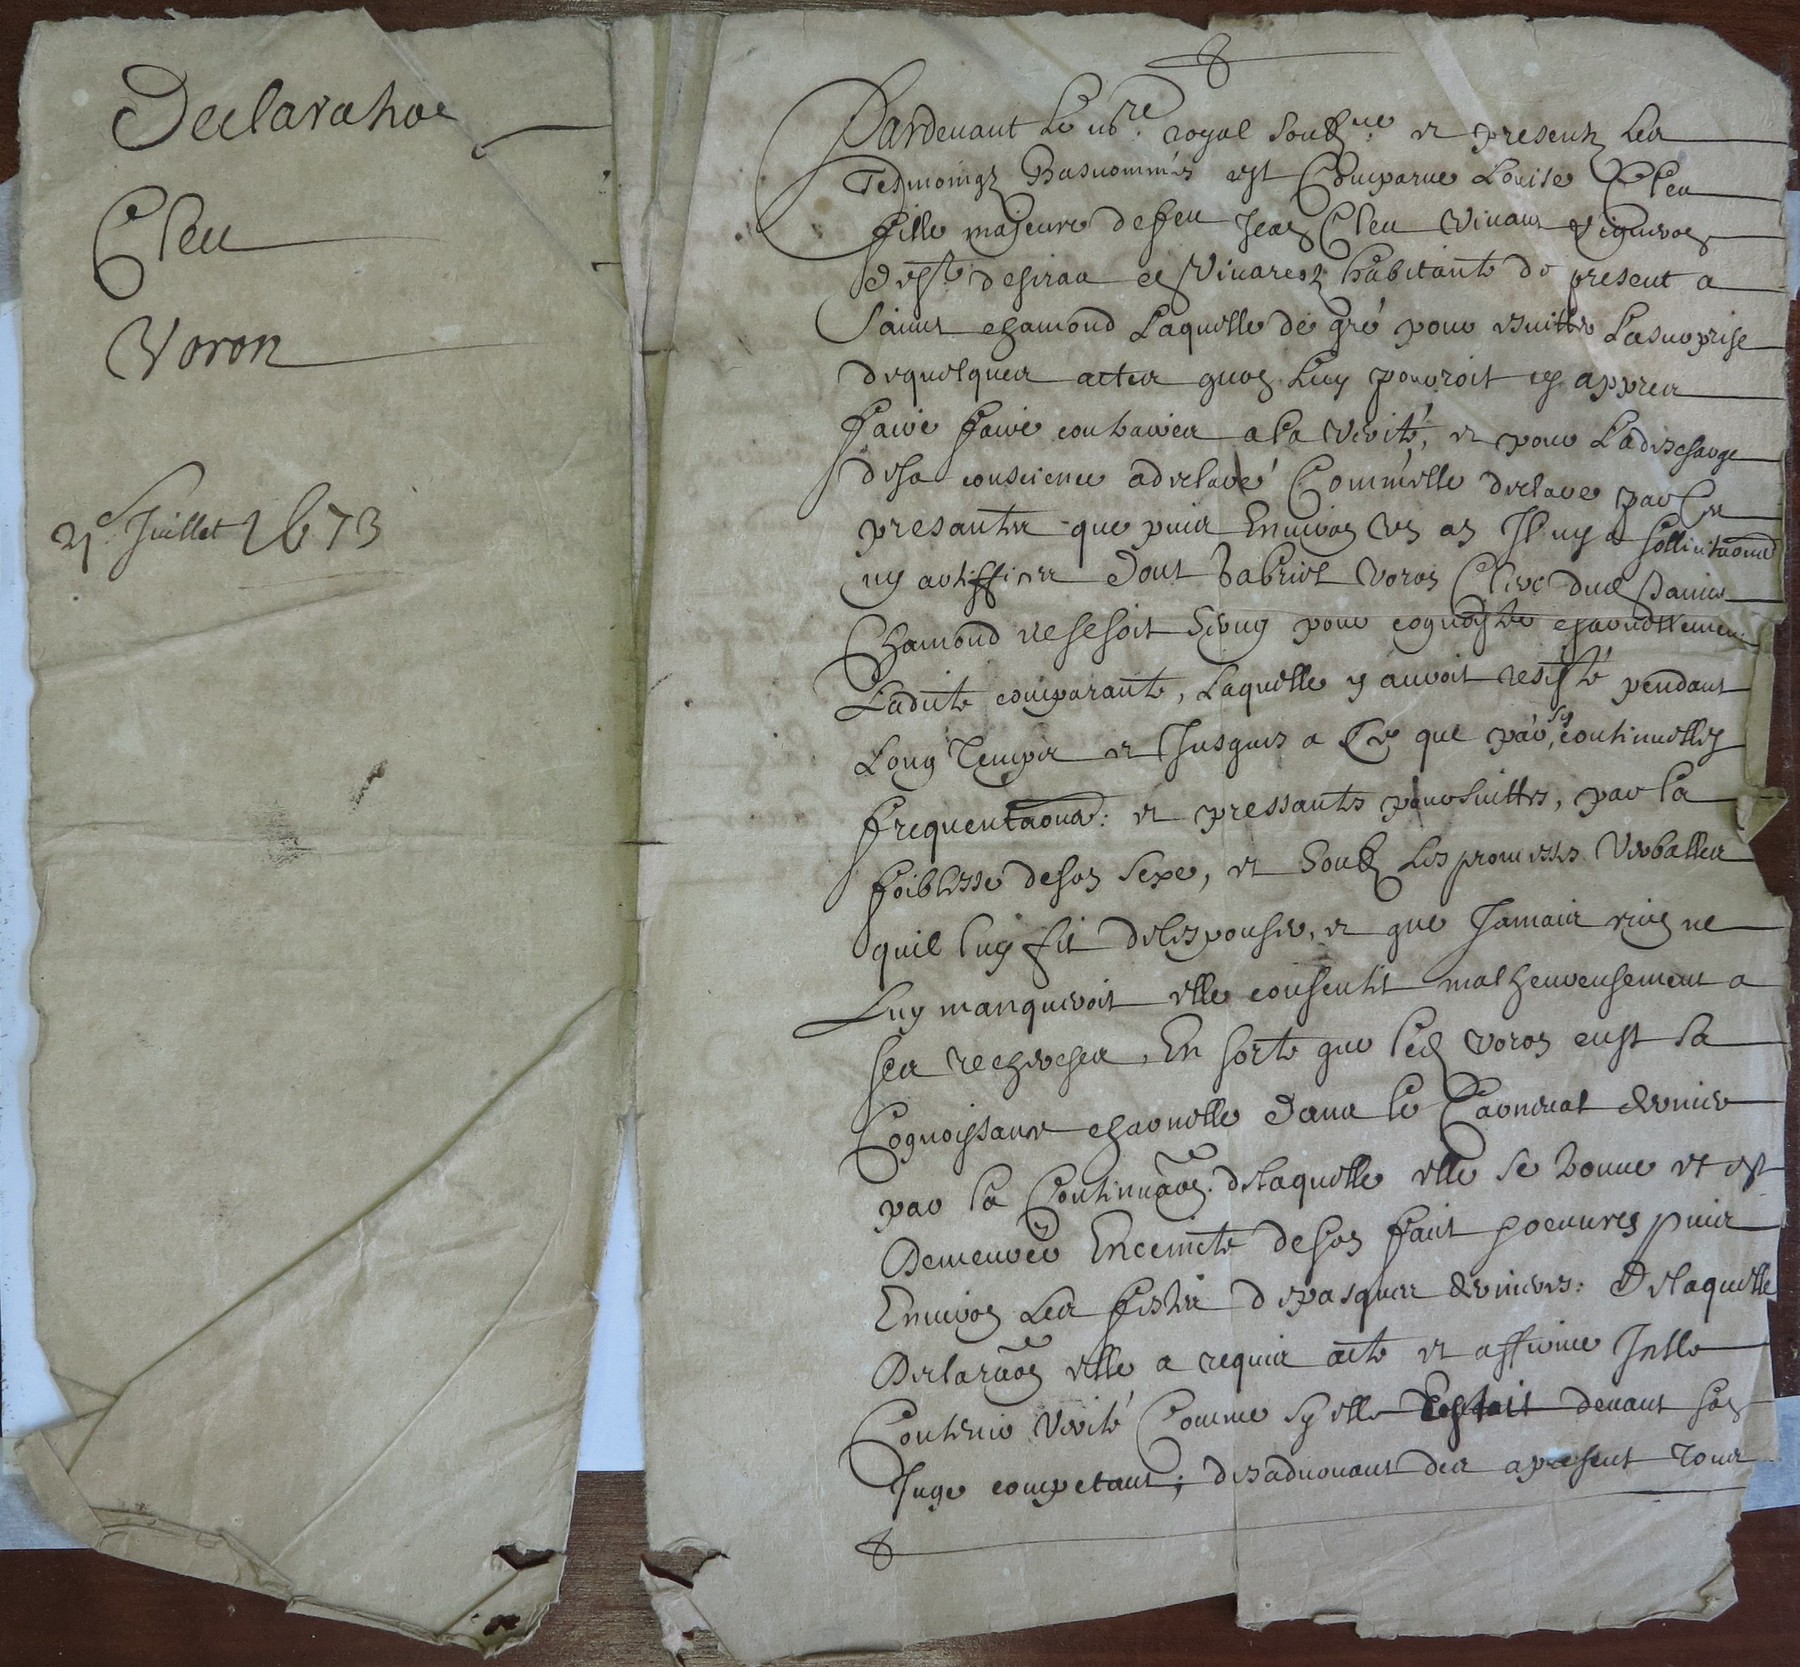 Declaration
Cleu
Voron
21e Juillet 1673
Pardevant le nore royal soubzne et presentz les
Tesmoingz basnommés est Comparue Louise Cleu
fille majeure de feu Jean Cleu vivant vigneron
en Vivarez habitante de present a
Sainct chamond Laquelle de gré pour esvitter Lasurprise
dequelques actes quon Luy pourroit cy appres
faire faire contraires a la verité, et pour Ladescharge
desa conscience a declaré Comm'elle declare par Ces
presantes que puis Environ un an Il ny a sollicitaons
ny artiffices dont Gabriel Voron Clerc dud Sainct
Chamond ne se soit servy pour cognoistre charnellement
Ladicte comparante, Laquelle y auroit resisté pendant
Long Temps et Jusques a Ce que par ses continuelles
frequentaons: et pressantes poursuittes, par la
foiblesse deson sexe, et soubz Les promesses verballes
quil luy fit delespouser, et que Jamais rien ne
Luy manqueroit elle consentit malheureusement a
ses recherches, En sorte que led Voron eust sa
Cognoissance charnelle dans le Carneval dernier
par la Continuaon. delaquelle elle se trouve et est
Demeurée Enceincte deson faict et oeuvres puis
Environ Les festes depasques derniers: Delaquelle
Declaraon elle a requis acte et affirme Jcelle
Contenir verité Comme sy elle Estoit devant son
Juge competant; desadvouant des apresent tous